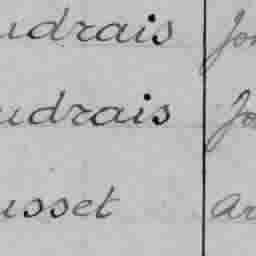 udrais Jo
udrais Jo
usset ar